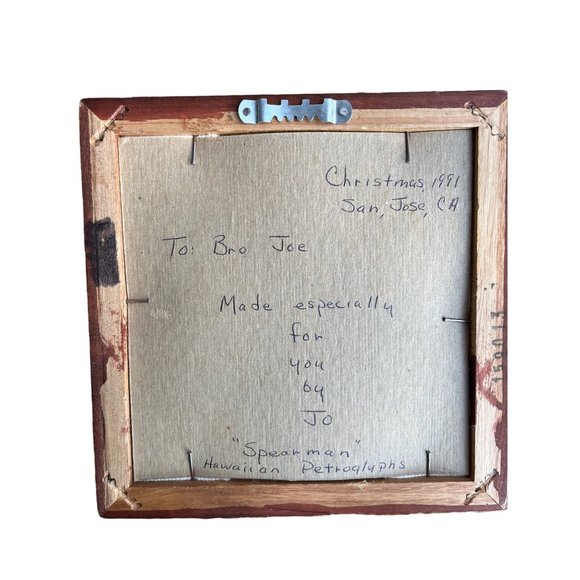 Christmas, 1991
San, Jose, CA
To: Bro Joe
Made especially
for
you
by
Jo
"Spearman"
Hawaiian Petroglyphs